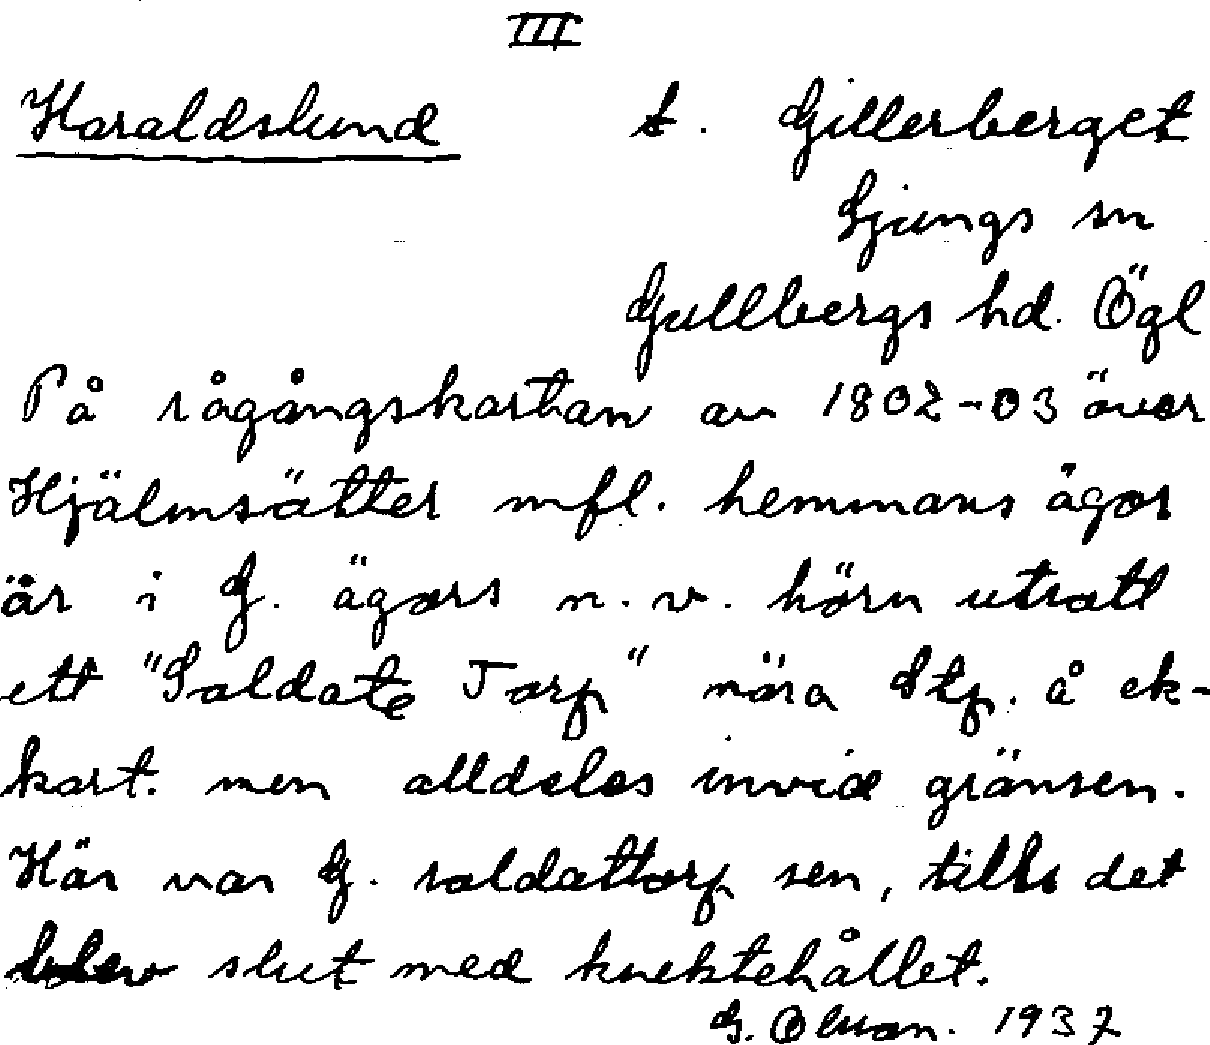 III
Haraldslund t. Gillerberget
Ljungs sn
Gullbergs hd. Ögl
På rågångskartan av 1802-03 över
Hjälmsätter mfl. hemmans ägor
är i G. ägors n.v. hörn utsatt
ett "Soldate Torp" nära Stp. å ek-
kart. men alldeles invid gränsen.
Här var G. soldattorp sen, tills det
blev slut med knektehållet.
G. Olsson. 1937